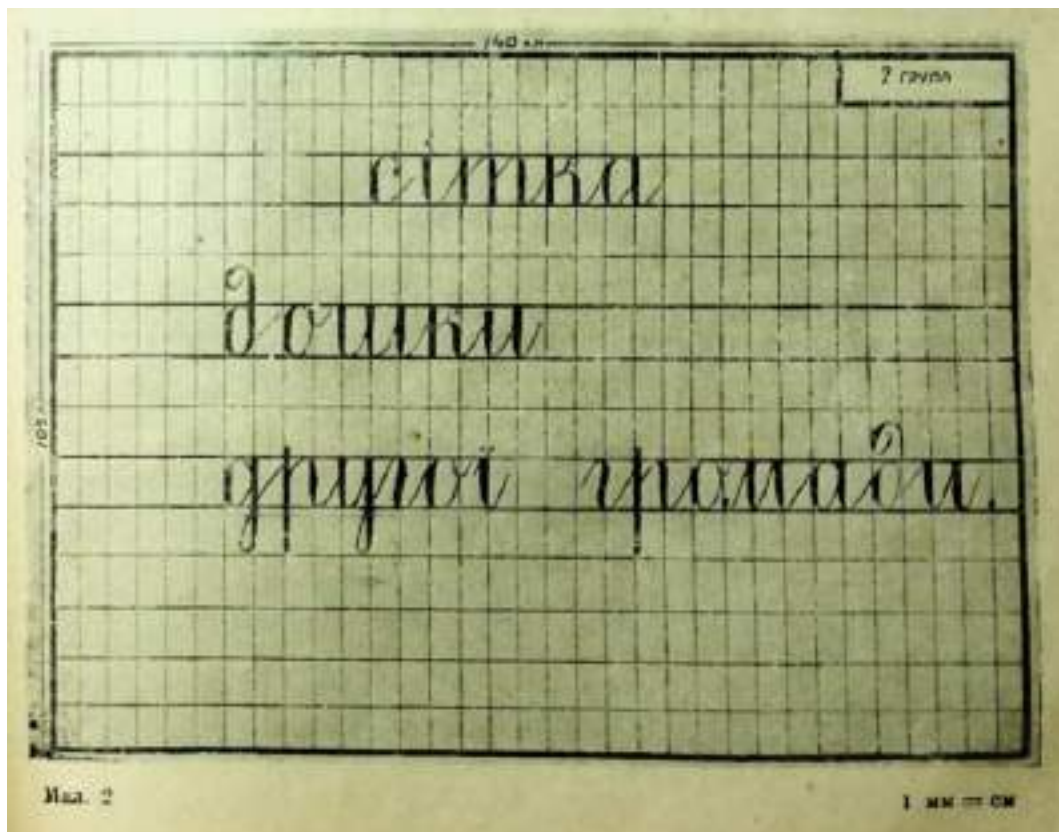 140 см
2 група
сітка
дошки
105
другої громади.
Мал. 2
1 мм = см